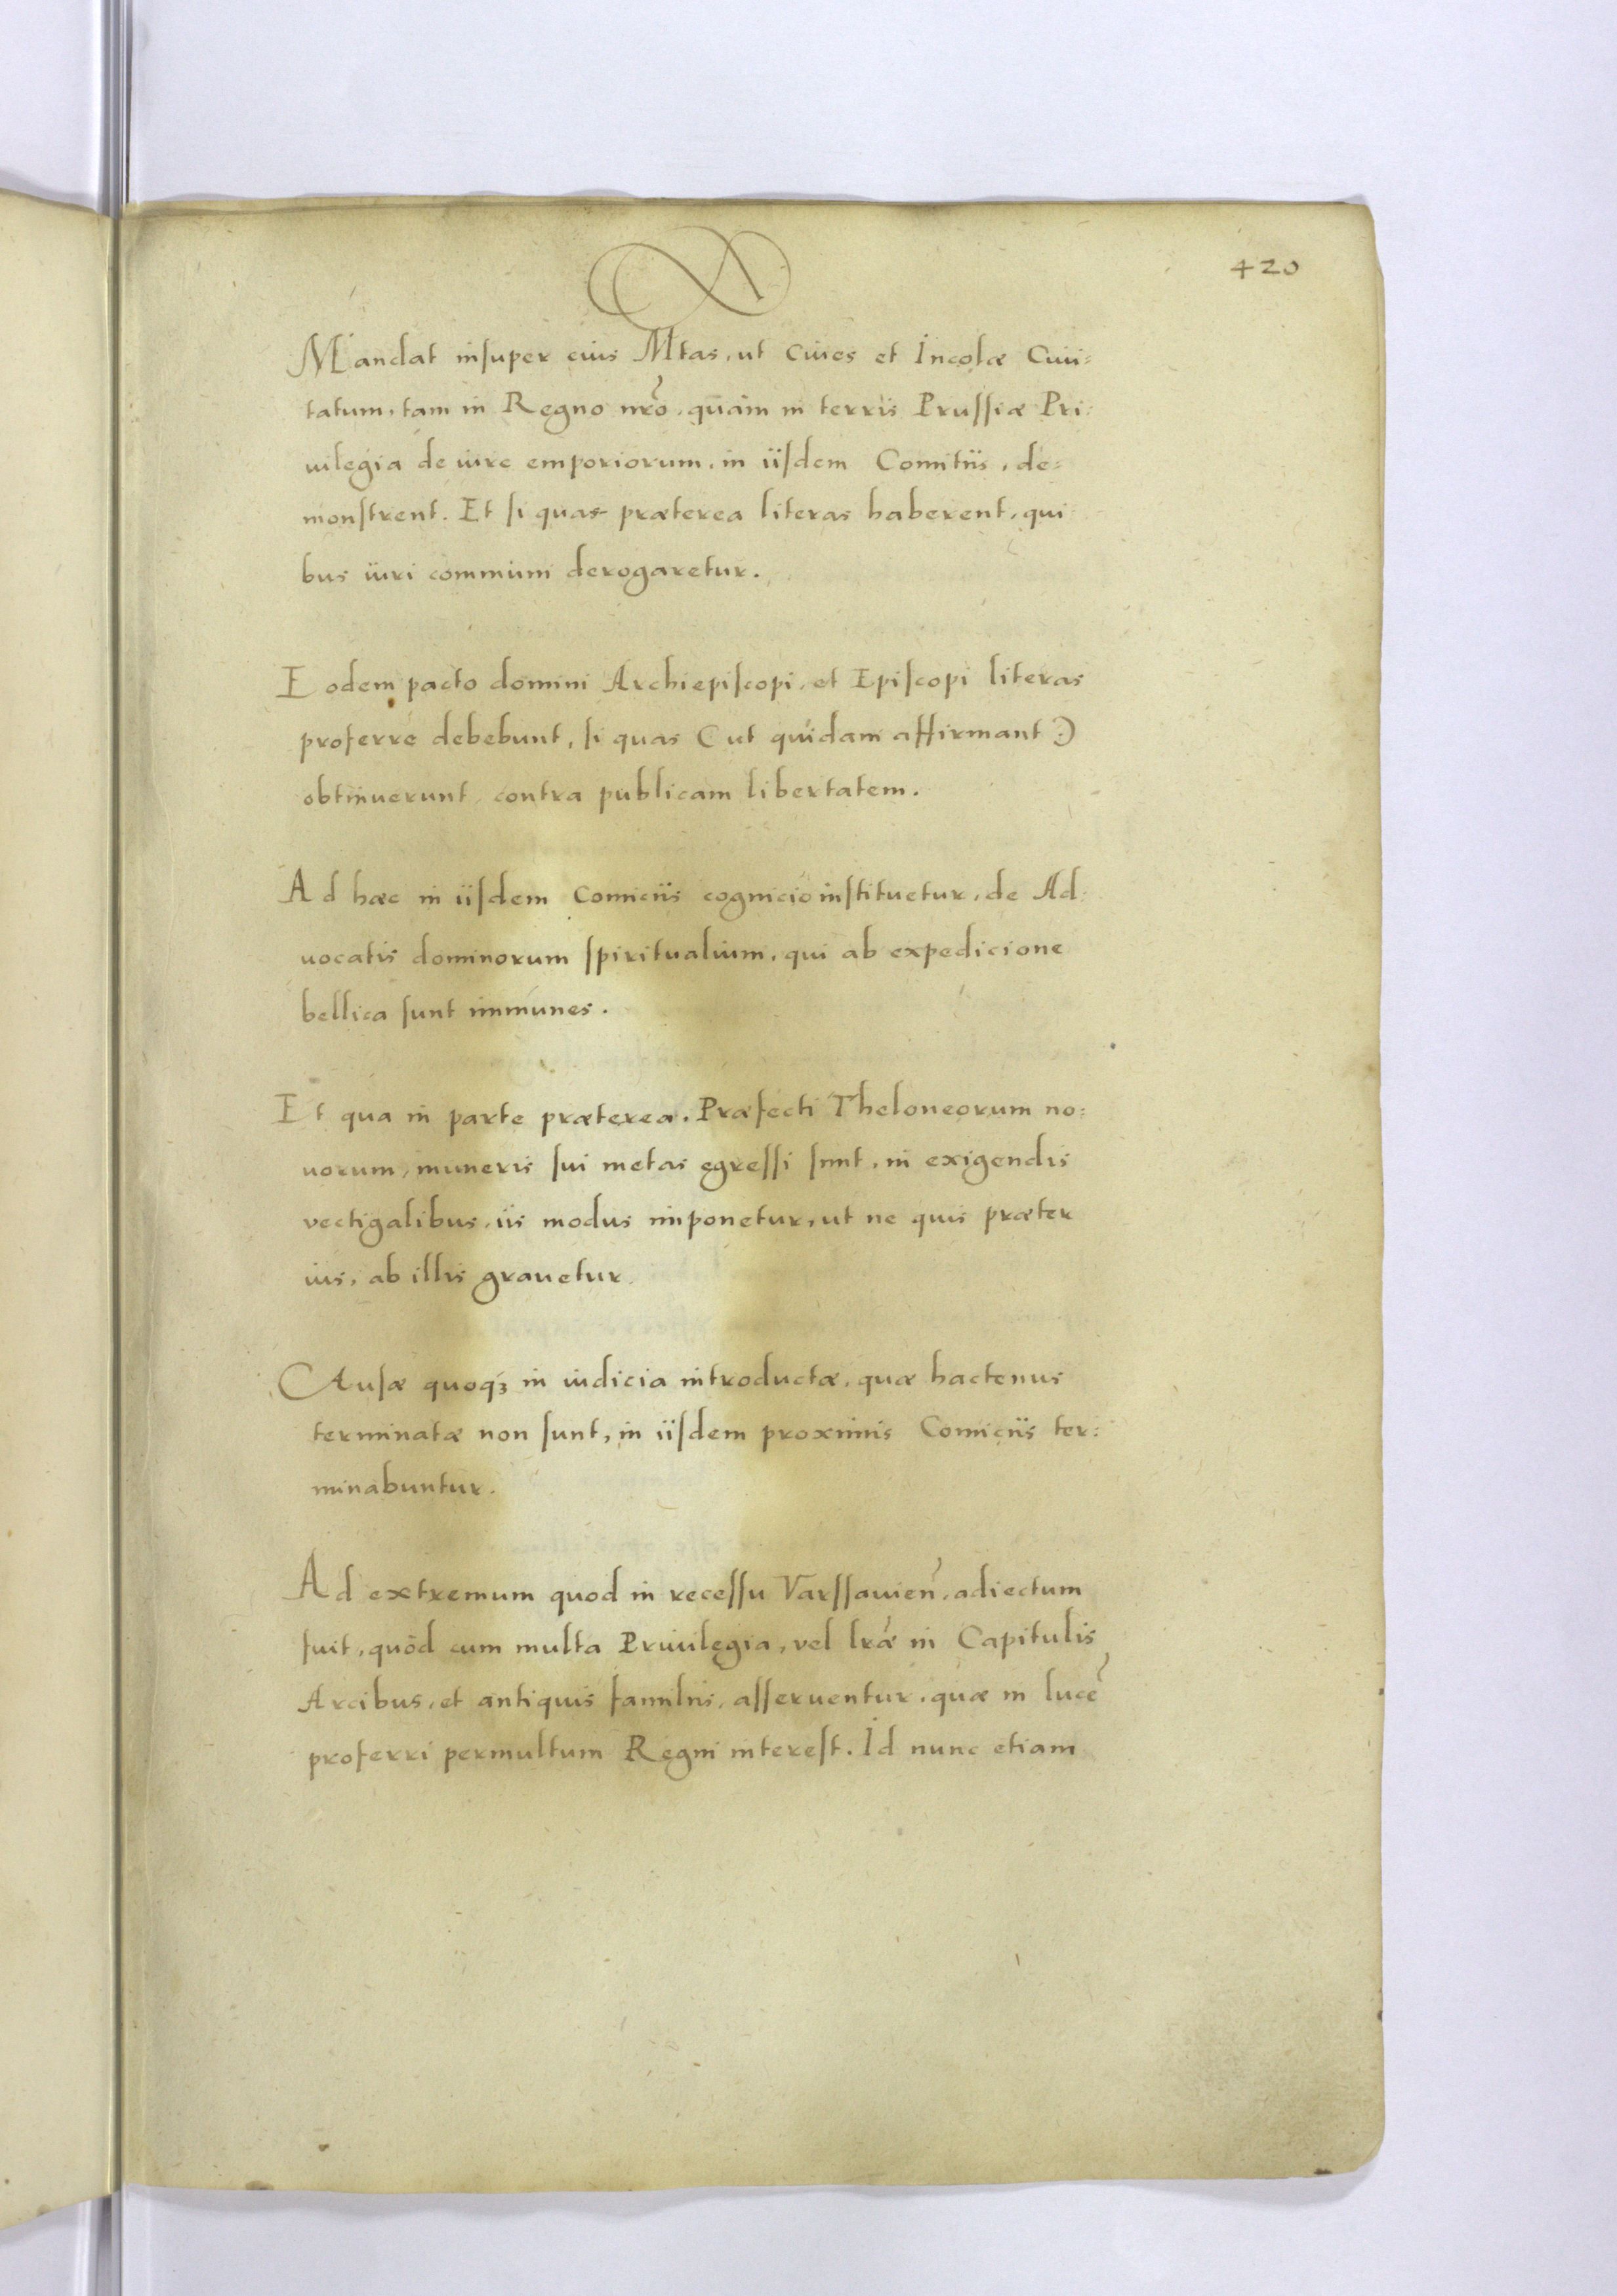 420
Mandat insuper eius Mtas, ut Ciues et Incolæ Ciui:
tatum, tam in Regno nr̃o, quàm in terris Prussiæ Pri:
uilegia de iure emporiorum, in iisdem Comitiis, de:
monstrent. Et si quas præterea literas haberent, qui
bus iuri communi derogaretur.
Eodem pacto domini Archiepiscopi, et Episcopi literas
proferre debebunt, si quas (ut quidam affirmant:)
obtinuerunt, contra publicam libertatem.
Ad hæc in iisdem Comiciis cognicio instituetur, de Ad:
uocatis dominorum spiritualium, qui ab expedicione
bellica sunt immunes.
Et qua in parte præterea. Præfecti Theloneorum no:
uorum, muneris sui metas egressi sunt, in exigendis
vectigalibus, iis modus imponetur, ut ne quis præter
ius, ab illis grauetur.
Causæ quoqȝ in iudicia introductæ, quæ hactenus
terminatæ non sunt, in iisdem proximis Comiciis ter:
minabuntur.
Ad extremum quod in recessu Varssauien̄, adiectum
fuit, quòd cum multa Priuilegia, vel lr̃æ in Capitulis
Arcibus, et antiquis familiis, asseruentur, quæ in lucē
proferri permultum Regni interest. Id nunc etiam